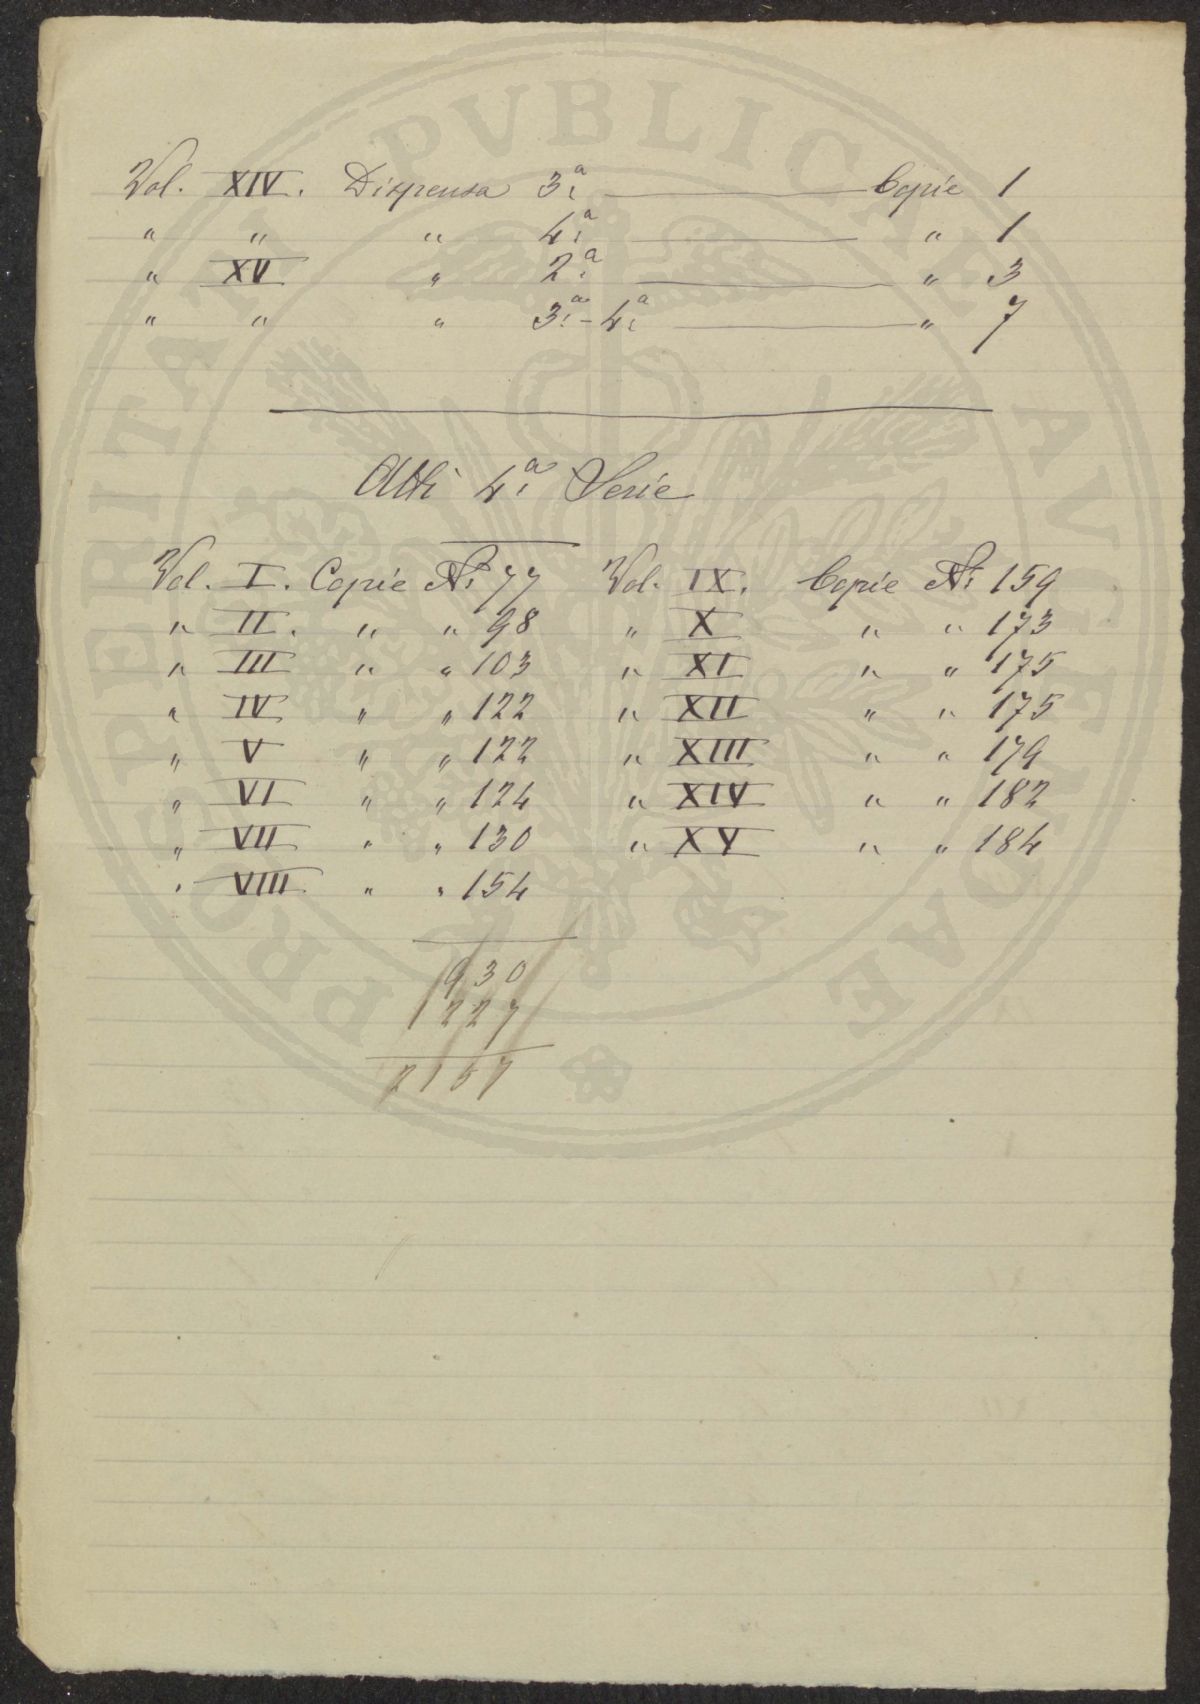 Vol. XIV. Dispensa 3.ª — Copie 1
" " " 4.ª — " 1
" XV " 2.ª — " 3
" " " 3.ª - 4.ª — " 7
Atti 4.ª Serie
Vol. I. Copie N. 77 Vol. IX. Copie N. 159
" II. " " 98 " X " " 173
" III " " 103 " XI " " 175
" IV " " 122 " XII " " 175
" V " " 122 " XIII " " 179
" VI " " 124 " XIV " " 182
" VII " " 130 " XV " " 184
" VIII " " 154
930
1227
2157
PROSPERITATI PVBLICAE AVGENDAE